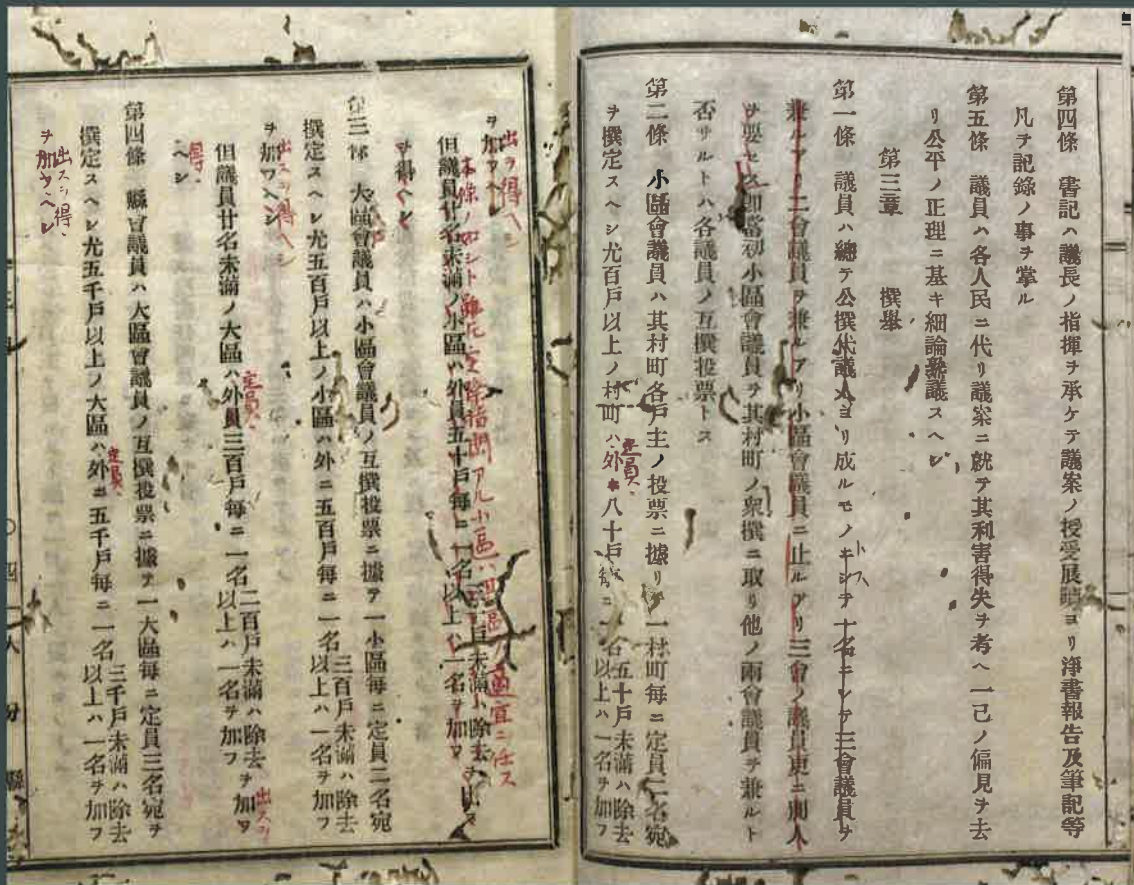 第四條 書記ハ議長ノ指揮ヲ承ケテ議案ノ授受展
ヨリ淨書報告及筆記等
凡テ記錄ノ事ヲ掌ル
第五條 議員ハ各人民ニ代リ議案ニ就テ其利害得失ヲ考ヘ一己ノ偏見ヲ去
リ公平ノ正理ニ基キ細論熟議スヘシ
第三章 撰擧
第一條 議員ハ總テ公撰代議人ヨリ成ルモノニシテ一名ニシテ三會議員ヲ
兼ルアリ二會議員ヲ兼ルアリ小區會議員ニ止ルアリ三會ノ議員東ニ別人
ヲ要セス即當初小區會議員ヲ其村町ノ衆撰ニ取リ他ノ兩會議員ヲ兼ルト
否サルトハ各議員ノ互撰投票トス
第二條 小區會議員ハ其村町各戶主ノ投票ニ據リ一村町每ニ定員二名宛
ヲ撰定スヘシ尤百戶以上ノ村町ハ外
定員
八十戶
一名
五十戶未滿ハ除去
以上ハ一名ヲ加フ
出ヲ得ヘシ
ヲ加フヘシ
本條ノ
小區ハ
適宜ニ任ス
但議員廿名未滿ノ小區ハ外員五十戶每ニ一名
未滿ハ除去
以上ハ一名ヲ加フ
ヲ得ヘシ
第三條 大區會議員ハ小區會議員ノ互撰投票ニ據テ一小區每ニ定員二名宛
撰定スヘシ尤五百戶以上ノ小區ハ外ニ五百戶每ニ一名
三百戶未滿ハ除去
以上ハ一名ヲ加フ
ヲ加フヘシ
但議員廿名未滿ノ大區ハ外員三百戶每ニ一名
定員
二百戶未滿ハ除去
以上ハ一名ヲ加フ
ヲ加フ
得
ヘシ
第四條 縣會議員ハ大區會議員ノ互撰投票ニ據テ一大區每ニ定員三名宛ヲ
撰定スヘシ尤五千戶以上ノ大區ハ外ニ五千戶每ニ一名
定員
三千戶未滿ハ除去
以上ハ一名ヲ加フ
ヲ加フヘシ